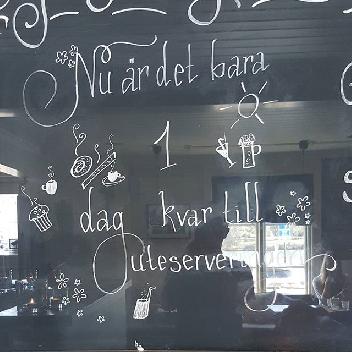 Nu är det bara
1
dag kvar till
Uteservering